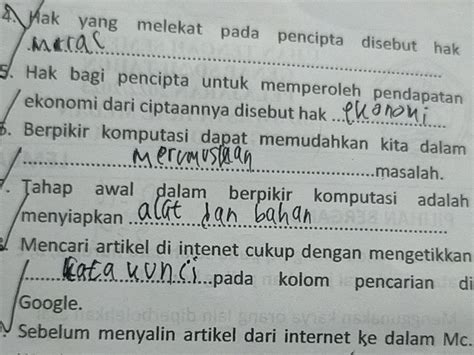 4. Hak yang melekat pada pencipta disebut hak
moral
5. Hak bagi pencipta untuk memperoleh pendapatan
ekonomi dari ciptaannya disebut hak ekonomi
6. Berpikir komputasi dapat memudahkan kita dalam
Merumuskan masalah.
7. Tahap awal dalam berpikir komputasi adalah
menyiapkan alat dan bahan
8. Mencari artikel di intenet cukup dengan mengetikkan
kata kunci pada kolom pencarian di
Google.
Sebelum menyalin artikel dari internet ke dalam Mc.